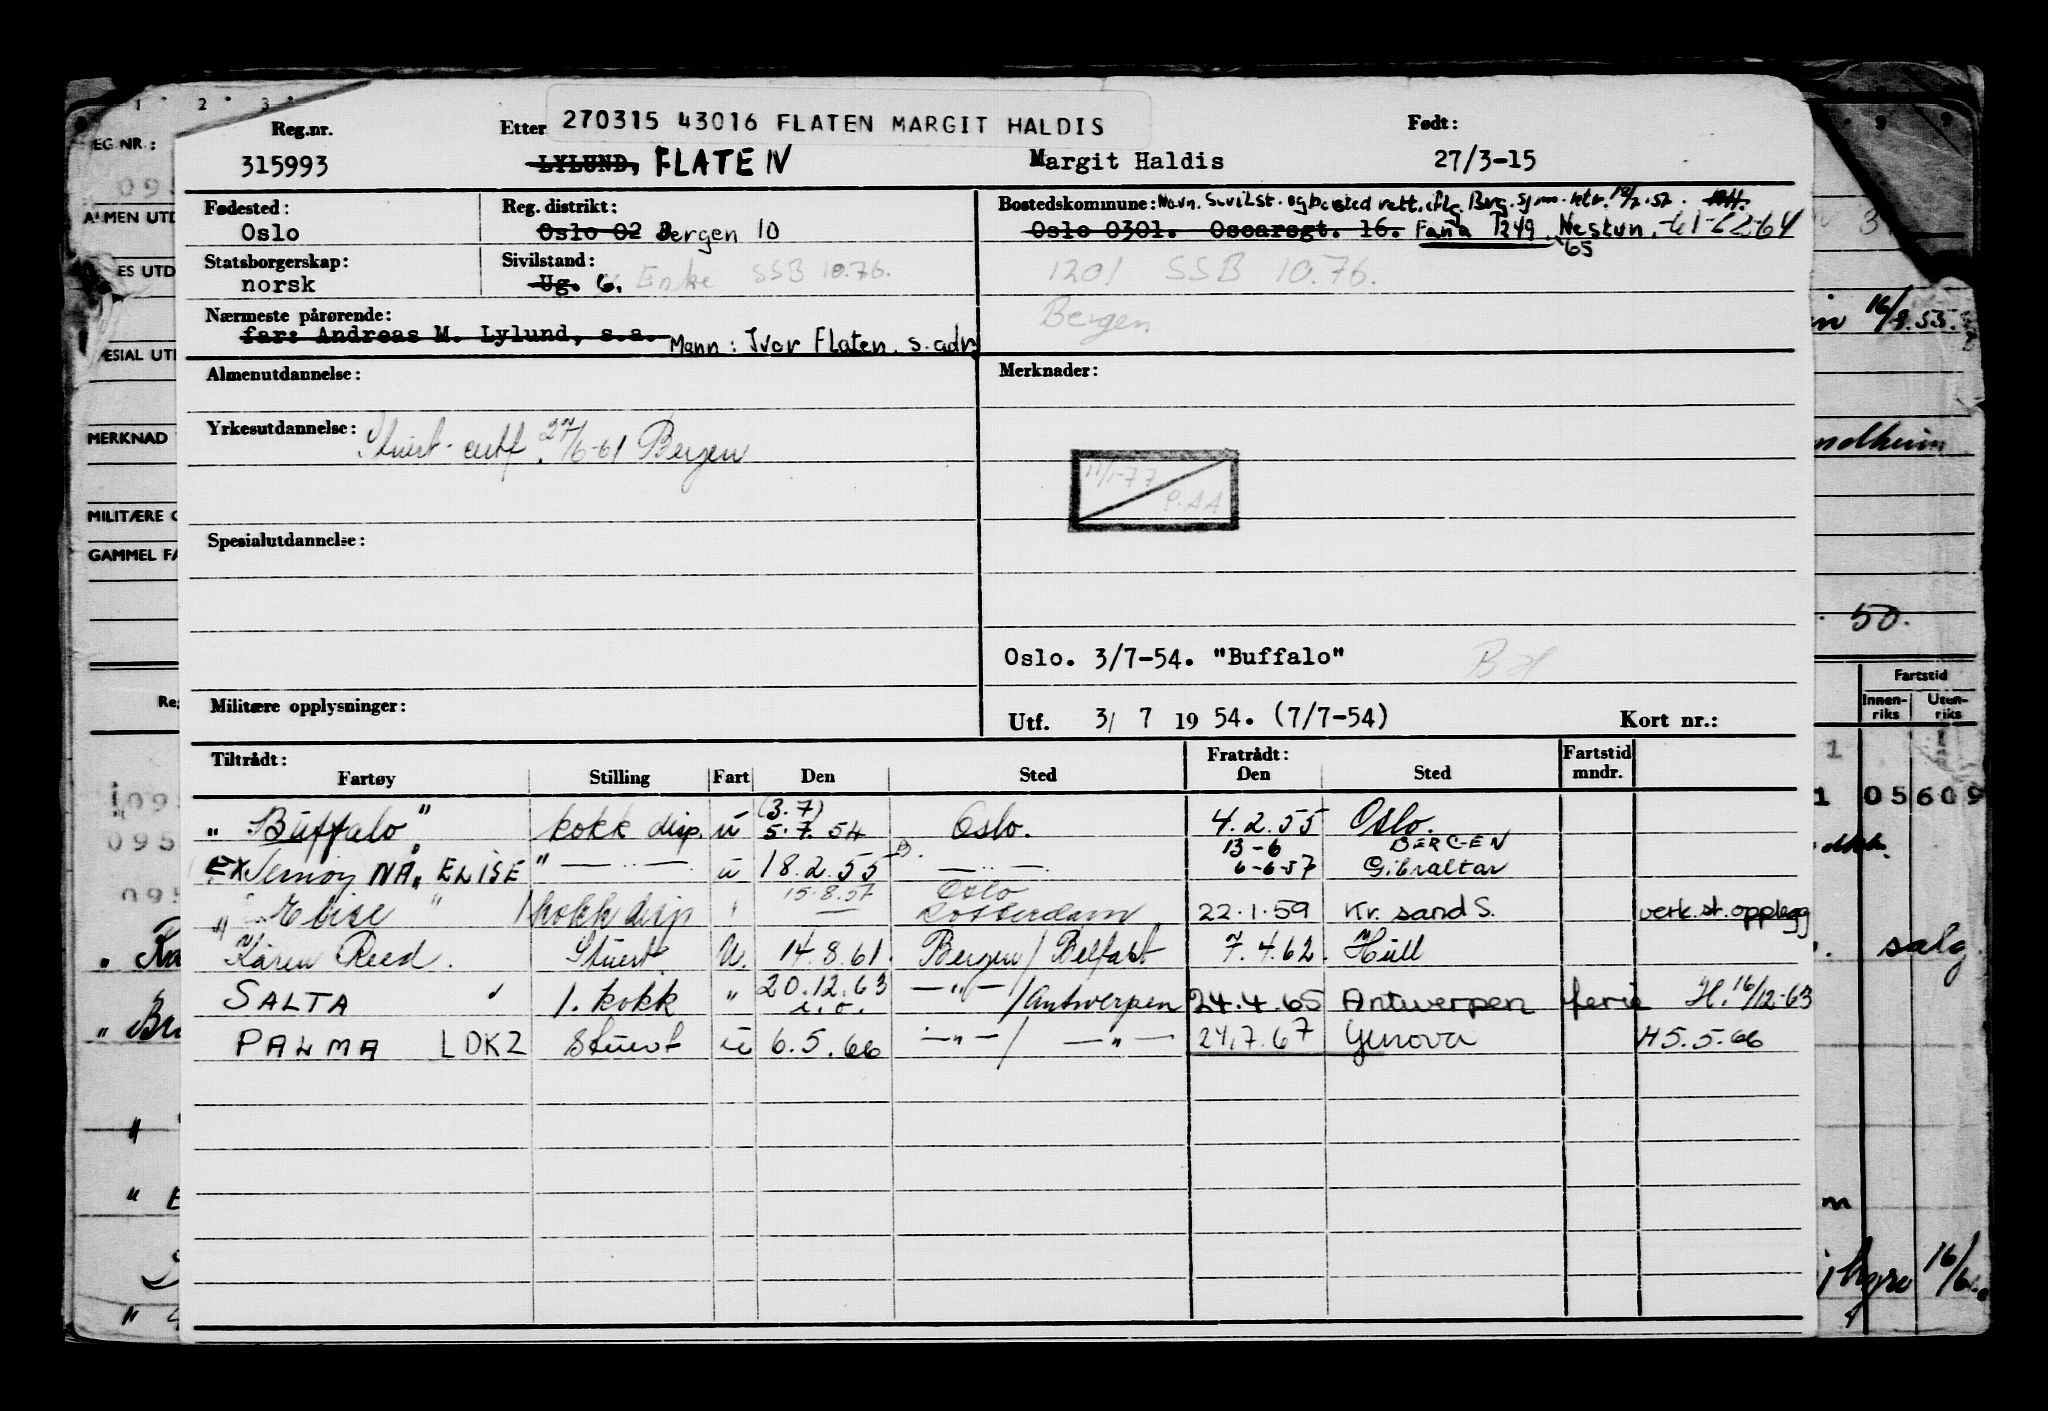 1 2 3
Reg.nr.
Etternavn
270315 43016 FLATEN MARGIT HALDIS
Født:
315993
LYLUND, FLATEN
Margit Haldis
27/3-15
Fødested:
Oslo
Reg. distrikt:
Oslo 02 Bergen 10
Bostedskommune: Navn. Sivilst. og bosted rett. iflg. Brg. sjøm.ktr.
Oslo 0301. Oscarsgt. 16. Fana 1249. Nestun. -61-62-64
65
Statsborgerskap:
norsk
Sivilstand:
Ug. G. Enke SSB 10.76.
1201 SSB 10.76.
Bergen
Nærmeste pårørende:
far: Andreas M. Lylund, s.a. Mann: Ivar Flaten. s. adr
Almenutdannelse:
Merknader:
Yrkesutdannelse: Stuert- cert. 27/6-61 Bergen
11/1-77
P.AA
Spesialutdannelse:
Oslo. 3/7-54. "Buffalo"
Militære opplysninger:
Utf. 3/ 7 19 54. (7/7-54)
Kort nr.:
Tiltrådt:
Fartøy Stilling Fart Den Sted
Fratrådt:
Den Sted
Fartstid
mndr.
(3.7)
" Buffalo" kokk disp. u 5.7.54 Oslo. 4.2.55 Oslo.
13-6 BERGEN
EX NÅ " ELISE " — " — u 18.2.55 — " — 6-6-57 Gibraltar
15.8.57 Oslo
" Elise " kokk disp " — Rotterdam 22.1.59 Kr. sand S. verk. st. opplegg
Karen Reed. Stuert U. 14.8.61. Bergen / Belfast 7.4.62. Hull
SALTA 1. kokk " 20.12.63 — " — / Antwerpen 24.4.65 Antwerpen ferie H. 16/12-63
PALMA LDKZ Stuert u 6.5.66 — " — / — " — 24.7.67 Genova H 5.5.66
REG.NR.:
MERKNAD
50.
Fartstid
Innen-
riks
Uten-
riks
1 05609
salg.